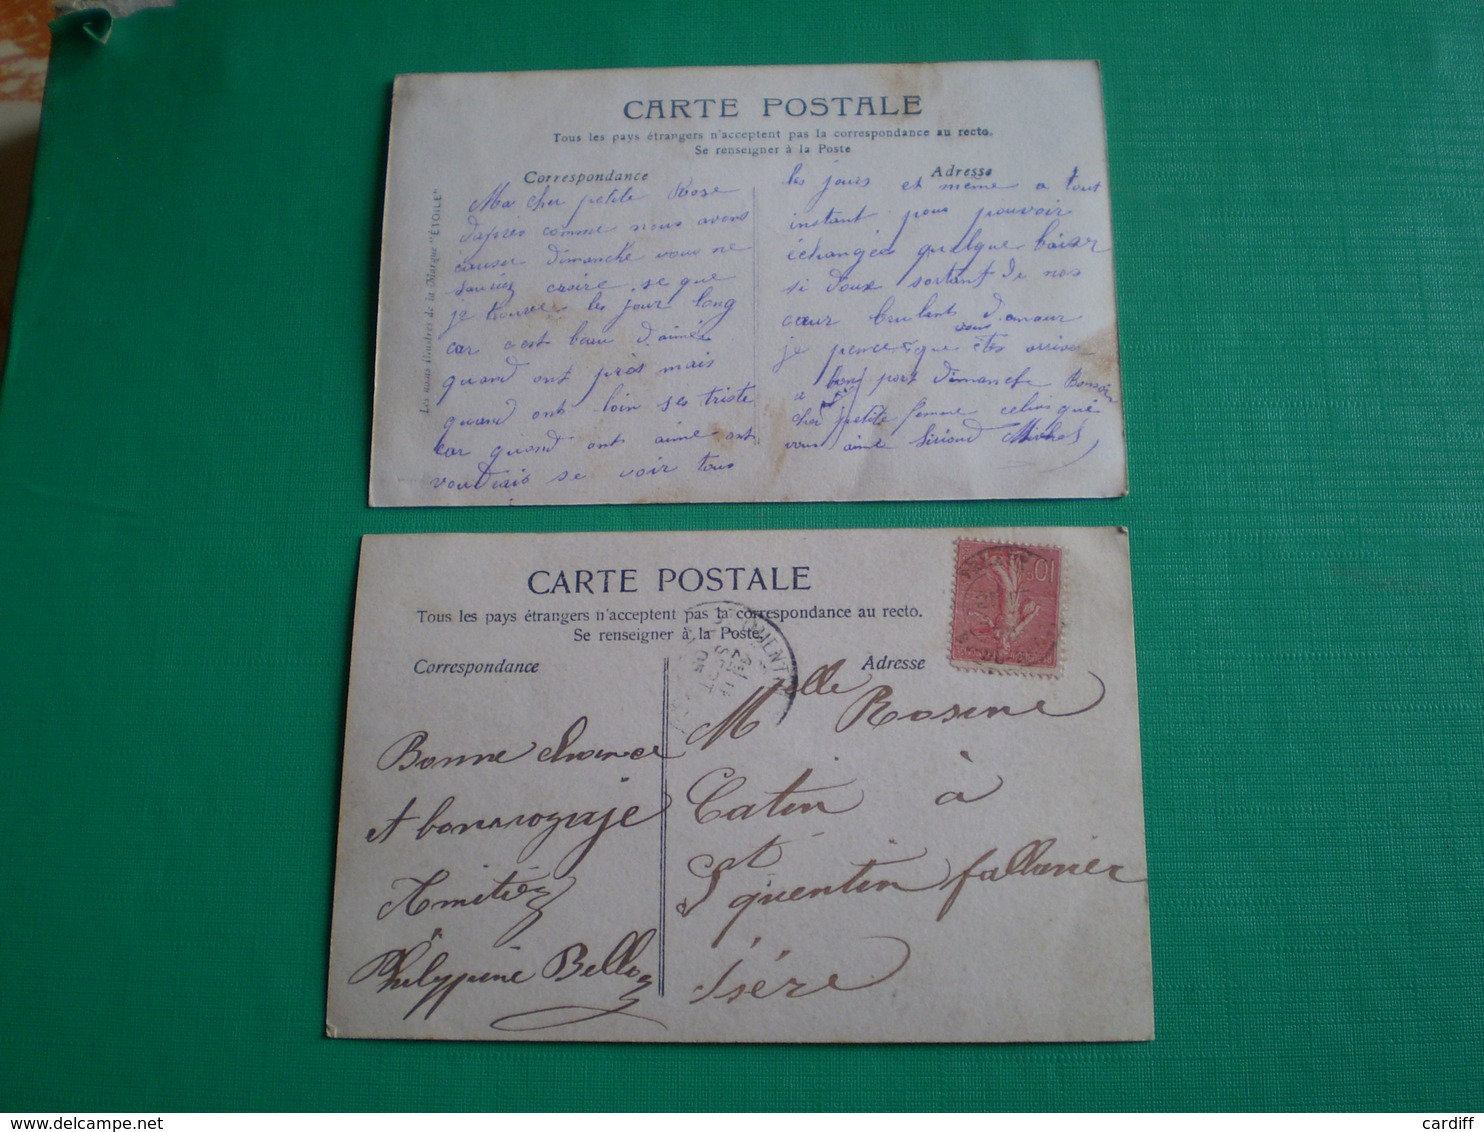 CARTE POSTALE
Tous les pays étrangers n'acceptent pas la correspondance au recto.
Se renseigner à la Poste
Correspondance
Ma cher petite Rose
d'après comme nous avons
causer dimanche vous ne
sauriez croire se que
je trouve les jour long
car c'est beau d'aimé
quand ont près mais
quand ont loin ses triste
car quand ont aime ont
voudrais se voir tous
Adresse
les jours et même a tout
instant pour pouvoir
échangée quelque baiser
si doux sortant de nos
cœur brulants d'amour
je pence que vous êtes arriver
a bon port dimanche Bonsoir
cher petite femme celui qui
vous aime Siriaud Michel
"ÉTOILE"
CARTE POSTALE
Tous les pays étrangers n'acceptent pas la correspondance au recto.
Se renseigner à la Poste.
Correspondance
Bonne chance
et bon voyage
Amitiés
Philyppine Belloz
Adresse
10
Melle Rosine
Catin à
St quentin fallavier
Isère
cardiff